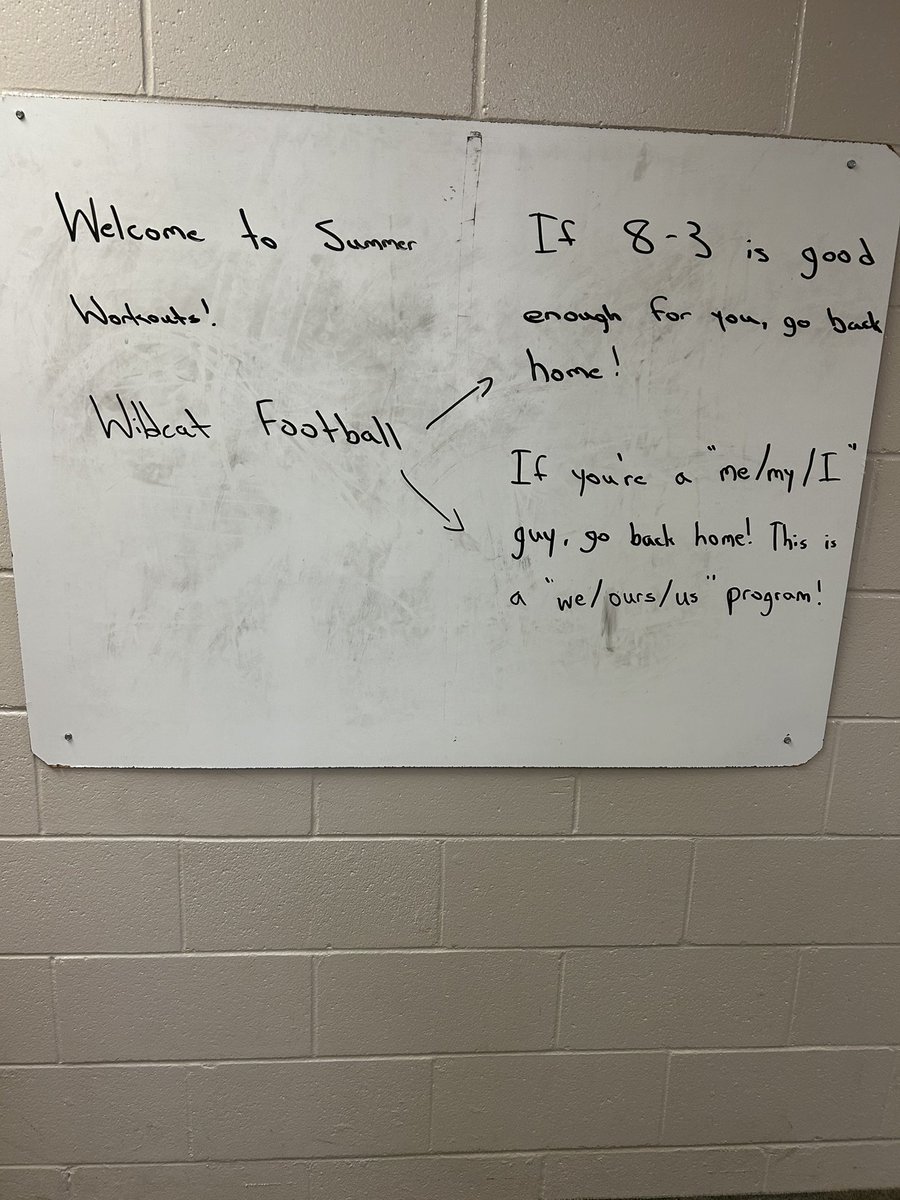 Welcome to Summer
Workouts!
Wildcat Football
If 8-3 is good
enough for you, go back
home!
If you're a "me/my/I"
guy, go back home! This is
a "we/ours/us" program!